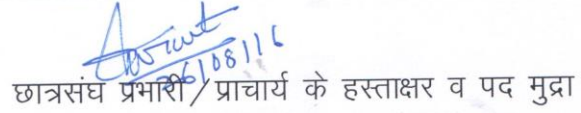 26/08/16
छात्रसंघ प्रभारी / प्राचार्य के हस्ताक्षर व पद मुद्रा